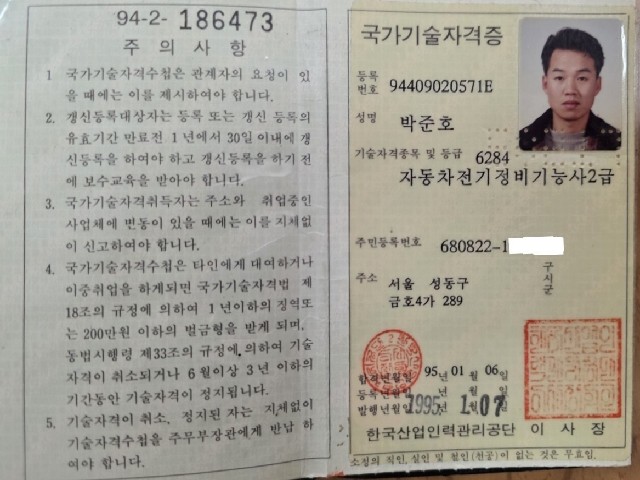 94-2- 186473
주 의 사 항
1. 국가기술자격수첩은 관계자의 요청이 있
을 때에는 이를 제시하여야 합니다.
2. 갱신등록대상자는 등록 또는 갱신 등록의
유효기간 만료전 1년에서 30일 이내에 갱
신등록을 하여야 하고 갱신등록을 하기 전
에 보수교육을 받아야 합니다.
3. 국가기술자격취득자는 주소와 취업중인
사업체에 변동이 있을 때에는 이를 지체없
이 신고하여야 합니다.
4. 국가기술자격수첩은 타인에게 대여하거나
이중취업을 하게되면 국가기술자격법 제
18조의 규정에 의하여 1년이하의 징역또
는 200만원 이하의 벌금형을 받게 되며,
동법시행령 제33조의 규정에 의하여 기술
자격이 취소되거나 6월이상 3년 이하의
기간동안 기술자격이 정지됩니다.
5. 기술자격이 취소, 정지된 자는 지체없이
기술자격수첩을 주무부장관에게 반납 하
여야 합니다.
국가기술자격증
등록
번호 94409020571E
성명 박준호
기술자격종목 및 등급 6284
자동차전기정비기능사2급
주민등록번호 680822-1
주소 서울 성동구
구시군
금호4가 289
합격년월일 95년 01월 06일
등록년월일
발행년월일 1995 1. 07
한국산업인력관리공단 이 사 장
소정의 직인, 실인 및 철인(천공)이 없는 것은 무효임.